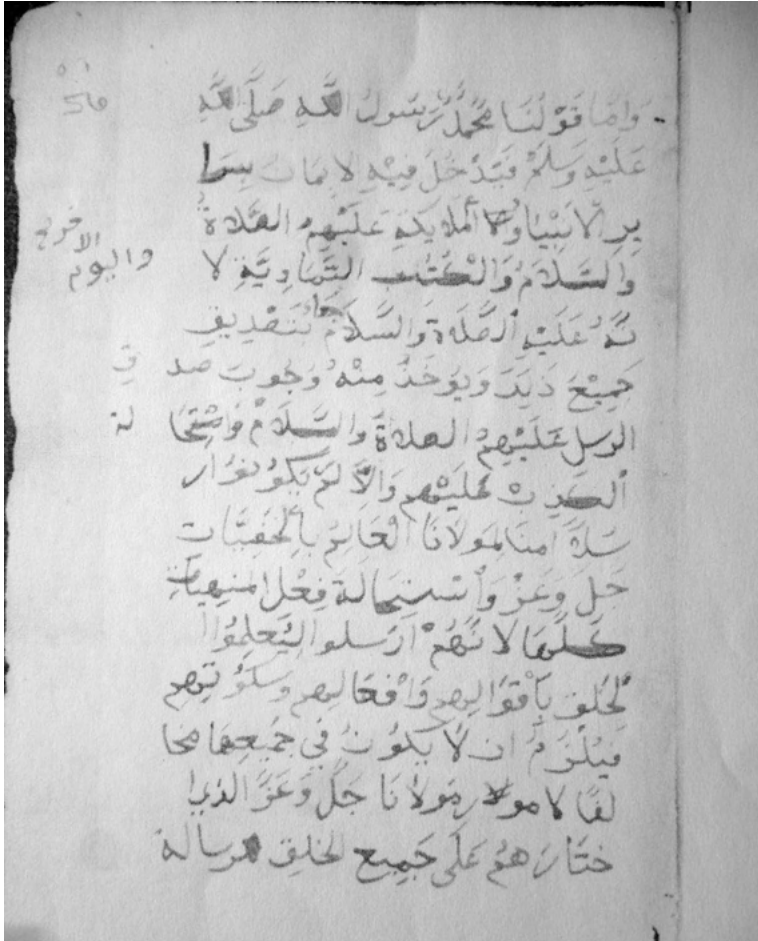 وَاَمَّا قَوْلُنَا مُحَمَّدٌ رَّسُولُ اللَّهِ صَلَّى اللَّهِ
عَلَيْهِ وَسَلَّمْ فَيَدْخُلَ فِيْهِ لاِيمَان بِسَا
يِرِ الاَنْبِيَا وَالْمَلَايِكَةِ عَلَيْهِمُ الصَّلَاةُ
وَالسَّلَامُ وَالْكُتُب السَّمَاوِيَّةِ لا
والْيوم الاخر
نَّهُ عَلَيْهِ الصَّلَاةَ وَالسَّلَامُ جَا بِتَصْدِيقِ
جَمِيْعَ ذَلِكَ وَيُوخَذُ مِنْهُ وُجُوبَ صد ق
الرسل عَلَيْهِمُ الصلاةُ وَالسَّلَامُ وَاسْتِحَا لة
الْكَذِبْ عَلَيْهِم وَاِلاَّ لَمْ يَكُوْنُوْا ر
سلاً اَمنا لِمَوْلَانَا الْعَالِمَ بِالْخَفِيَّات
جَلَ وَعَزَّ وَاسْتِحَالةَ فِعْلِ الْمَنْهِيَات
كُلَّهَا لاَنَّهُمْ اَرْسَلوا لِيُعَلِمُوْا
الْخَلقِ بِاَقْوَالِهِم وَاَفْعَالِهِم وَسَكُوْتِهِم
فَيَلْزَمُ ان لَا يَكُوْنُ فِي جَمِيْعِهَا مخا
لفًا لامر مَوْلَانَا جَلَّ وَعَزَّ الذي ا
خْتَارَهُمْ عَلَى جَمِيعِ الخلقِ رسالة